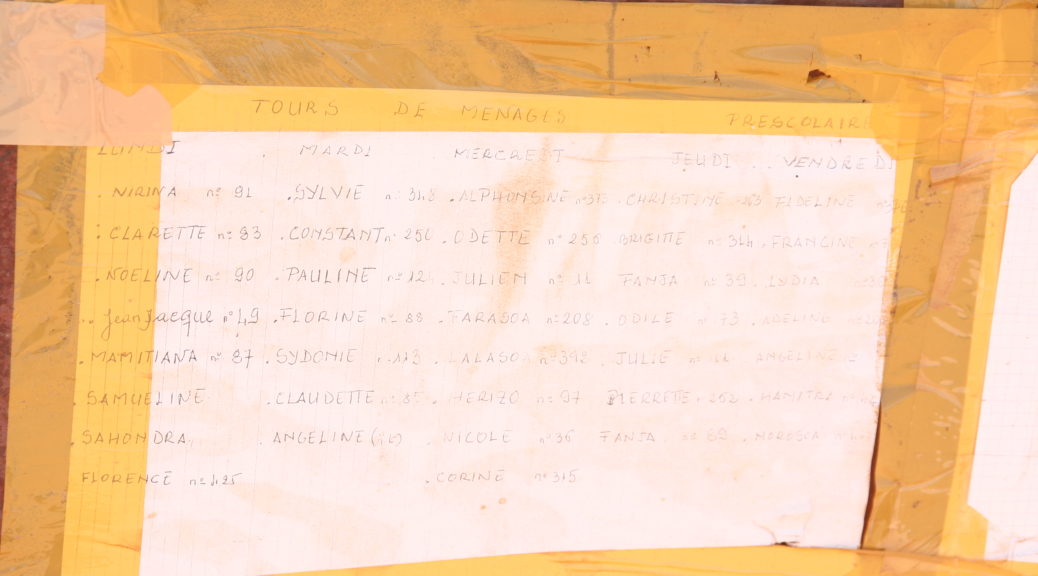 TOURS DE MENAGES PRESCOLAIRE
LUNDI MARDI MERCREDI JEUDI VENDREDI
NIRINA n° 91 SYLVIE n° 348 ALPHONSINE n° 373 CHRISTINE 263 FIDELINE
CLARETTE n° 93 CONSTANT n° 250 ODETTE n° 256 BRIGITTE n° 344 FRANCINE
NOELINE n° 90 PAULINE n° 124 JULIEN n° 16 FANJA n° 39 LYDIA
Jean Jacque n° 49 FLORINE n° 88 FARASOA n° 208 ODILE n° 73 ADELINE
MAMITIANA n° 87 SYDONIE n° 113 LALASOA n° 392 JULIE n° ANGELINE
SAMUELINE CLAUDETTE n° 85 HERIZO n° 97 PIERRETTE n° 252 HAMITRA
SAHONDRA ANGELINE NICOLE n° 36 FANJA n° 62
FLORENCE n° 125 CORINE n° 315